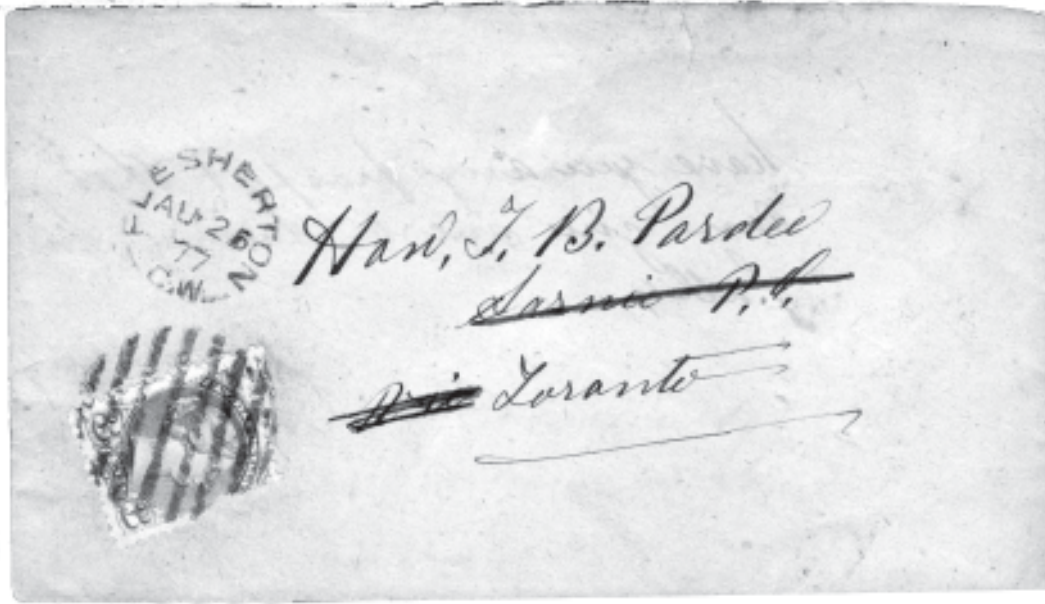 FLESHERTON
JAN 26
77
C.W.
Hon, T. B. Pardee
Sarnia P.O.
Via Toronto